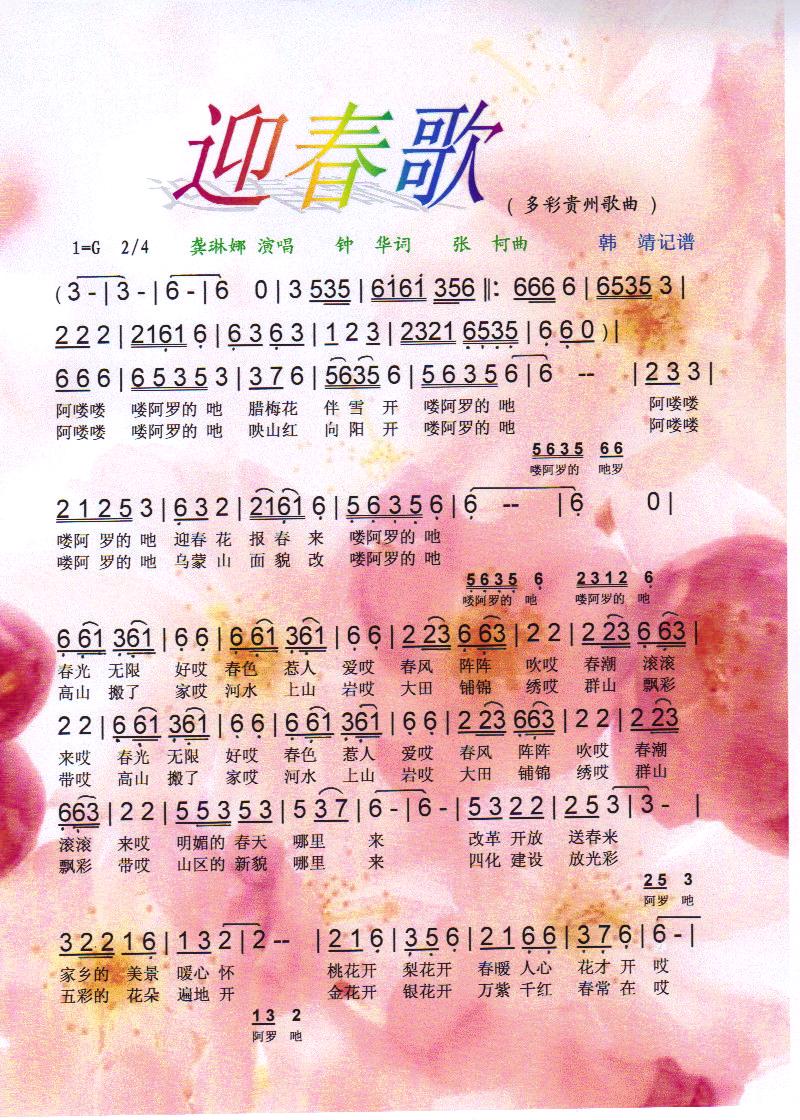 迎春歌
( 多彩贵州歌曲 )
1=G 2/4 龚琳娜 演唱 钟 华词 张 柯曲 韩 靖记谱
( 3 - | 3 - | 6 - | 6 0 | 3 535 | 6161 356 ‖: 666 6 | 6535 3 |
2 2 2 | 2161 6 | 6 3 6 3 | 1 2 3 | 2321 6535 | 6 6 0 ) |
6 6 6 | 6 5 3 5 3 | 3 7 6 | 5635 6 | 5 6 3 5 6 | 6 -- | 2 3 3 |
阿喽喽 喽阿罗的 吔 腊梅花 伴 雪 开 喽阿罗的 吔 阿喽喽
阿喽喽 喽阿罗的 吔 映山红 向 阳 开 喽阿罗的 吔 阿喽喽
5 6 3 5 6 6
喽阿罗的 吔罗
2 1 2 5 3 | 6 3 2 | 2161 6 | 5 6 3 5 6 | 6 -- | 6 0 |
喽阿 罗的 吔 迎春 花 报 春 来 喽阿罗的 吔
喽阿 罗的 吔 乌蒙 山 面 貌 改 喽阿罗的 吔
5 6 3 5 6 2 3 1 2 6
喽阿罗的 吔 喽阿罗的 吔
6 61 361 | 6 6 | 6 61 361 | 6 6 | 2 23 6 63 | 2 2 | 2 23 6 63 |
春光 无限 好哎 春色 惹人 爱哎 春风 阵阵 吹哎 春潮 滚滚
高山 搬了 家哎 河水 上山 岩哎 大田 铺锦 绣哎 群山 飘彩
2 2 | 6 61 361 | 6 6 | 6 61 361 | 6 6 | 2 23 663 | 2 2 | 2 23
来哎 春光 无限 好哎 春色 惹人 爱哎 春风 阵阵 吹哎 春潮
带哎 高山 搬了 家哎 河水 上山 岩哎 大田 铺锦 绣哎 群山
663 | 2 2 | 5 5 3 5 3 | 5 3 7 | 6 - | 6 - | 5 3 2 2 | 2 5 3 | 3 - |
滚滚 来哎 明媚的 春天 哪里 来 改革 开放 送春来
飘彩 带哎 山区的 新貌 哪里 来 四化 建设 放光彩
2 5 3
阿罗 吔
3 2 2 1 6 | 1 3 2 | 2 -- | 2 1 6 | 3 5 6 | 2 1 6 6 | 3 7 6 | 6 - |
家乡的 美景 暖心 怀 桃花开 梨花开 春暖 人心 花才 开 哎
五彩的 花朵 遍地 开 金花开 银花开 万紫 千红 春常 在 哎
1 3 2
阿罗 吔